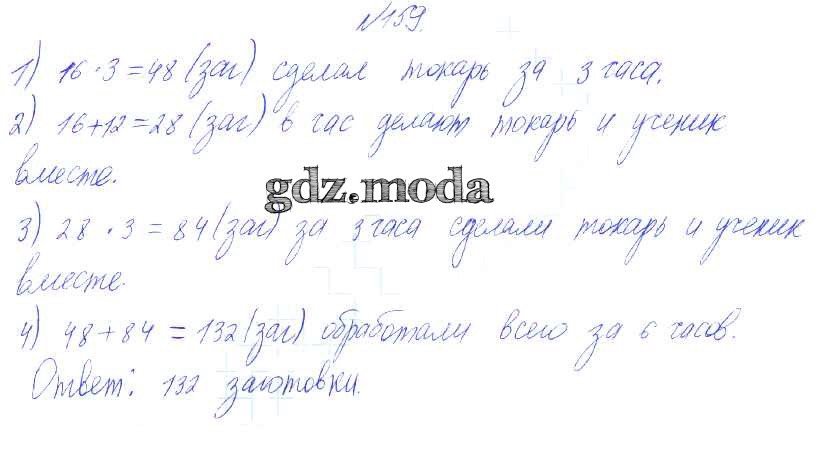 №159.
1) 16·3=48 (заг) сделал токарь за 3 часа.
2) 16+12=28 (заг) в час делают токарь и ученик
вместе.
gdz.moda
3) 28·3=84 (заг) за 3 часа сделали токарь и ученик
вместе.
4) 48+84=132 (заг) обработали всего за 6 часов.
Ответ: 132 заготовки.